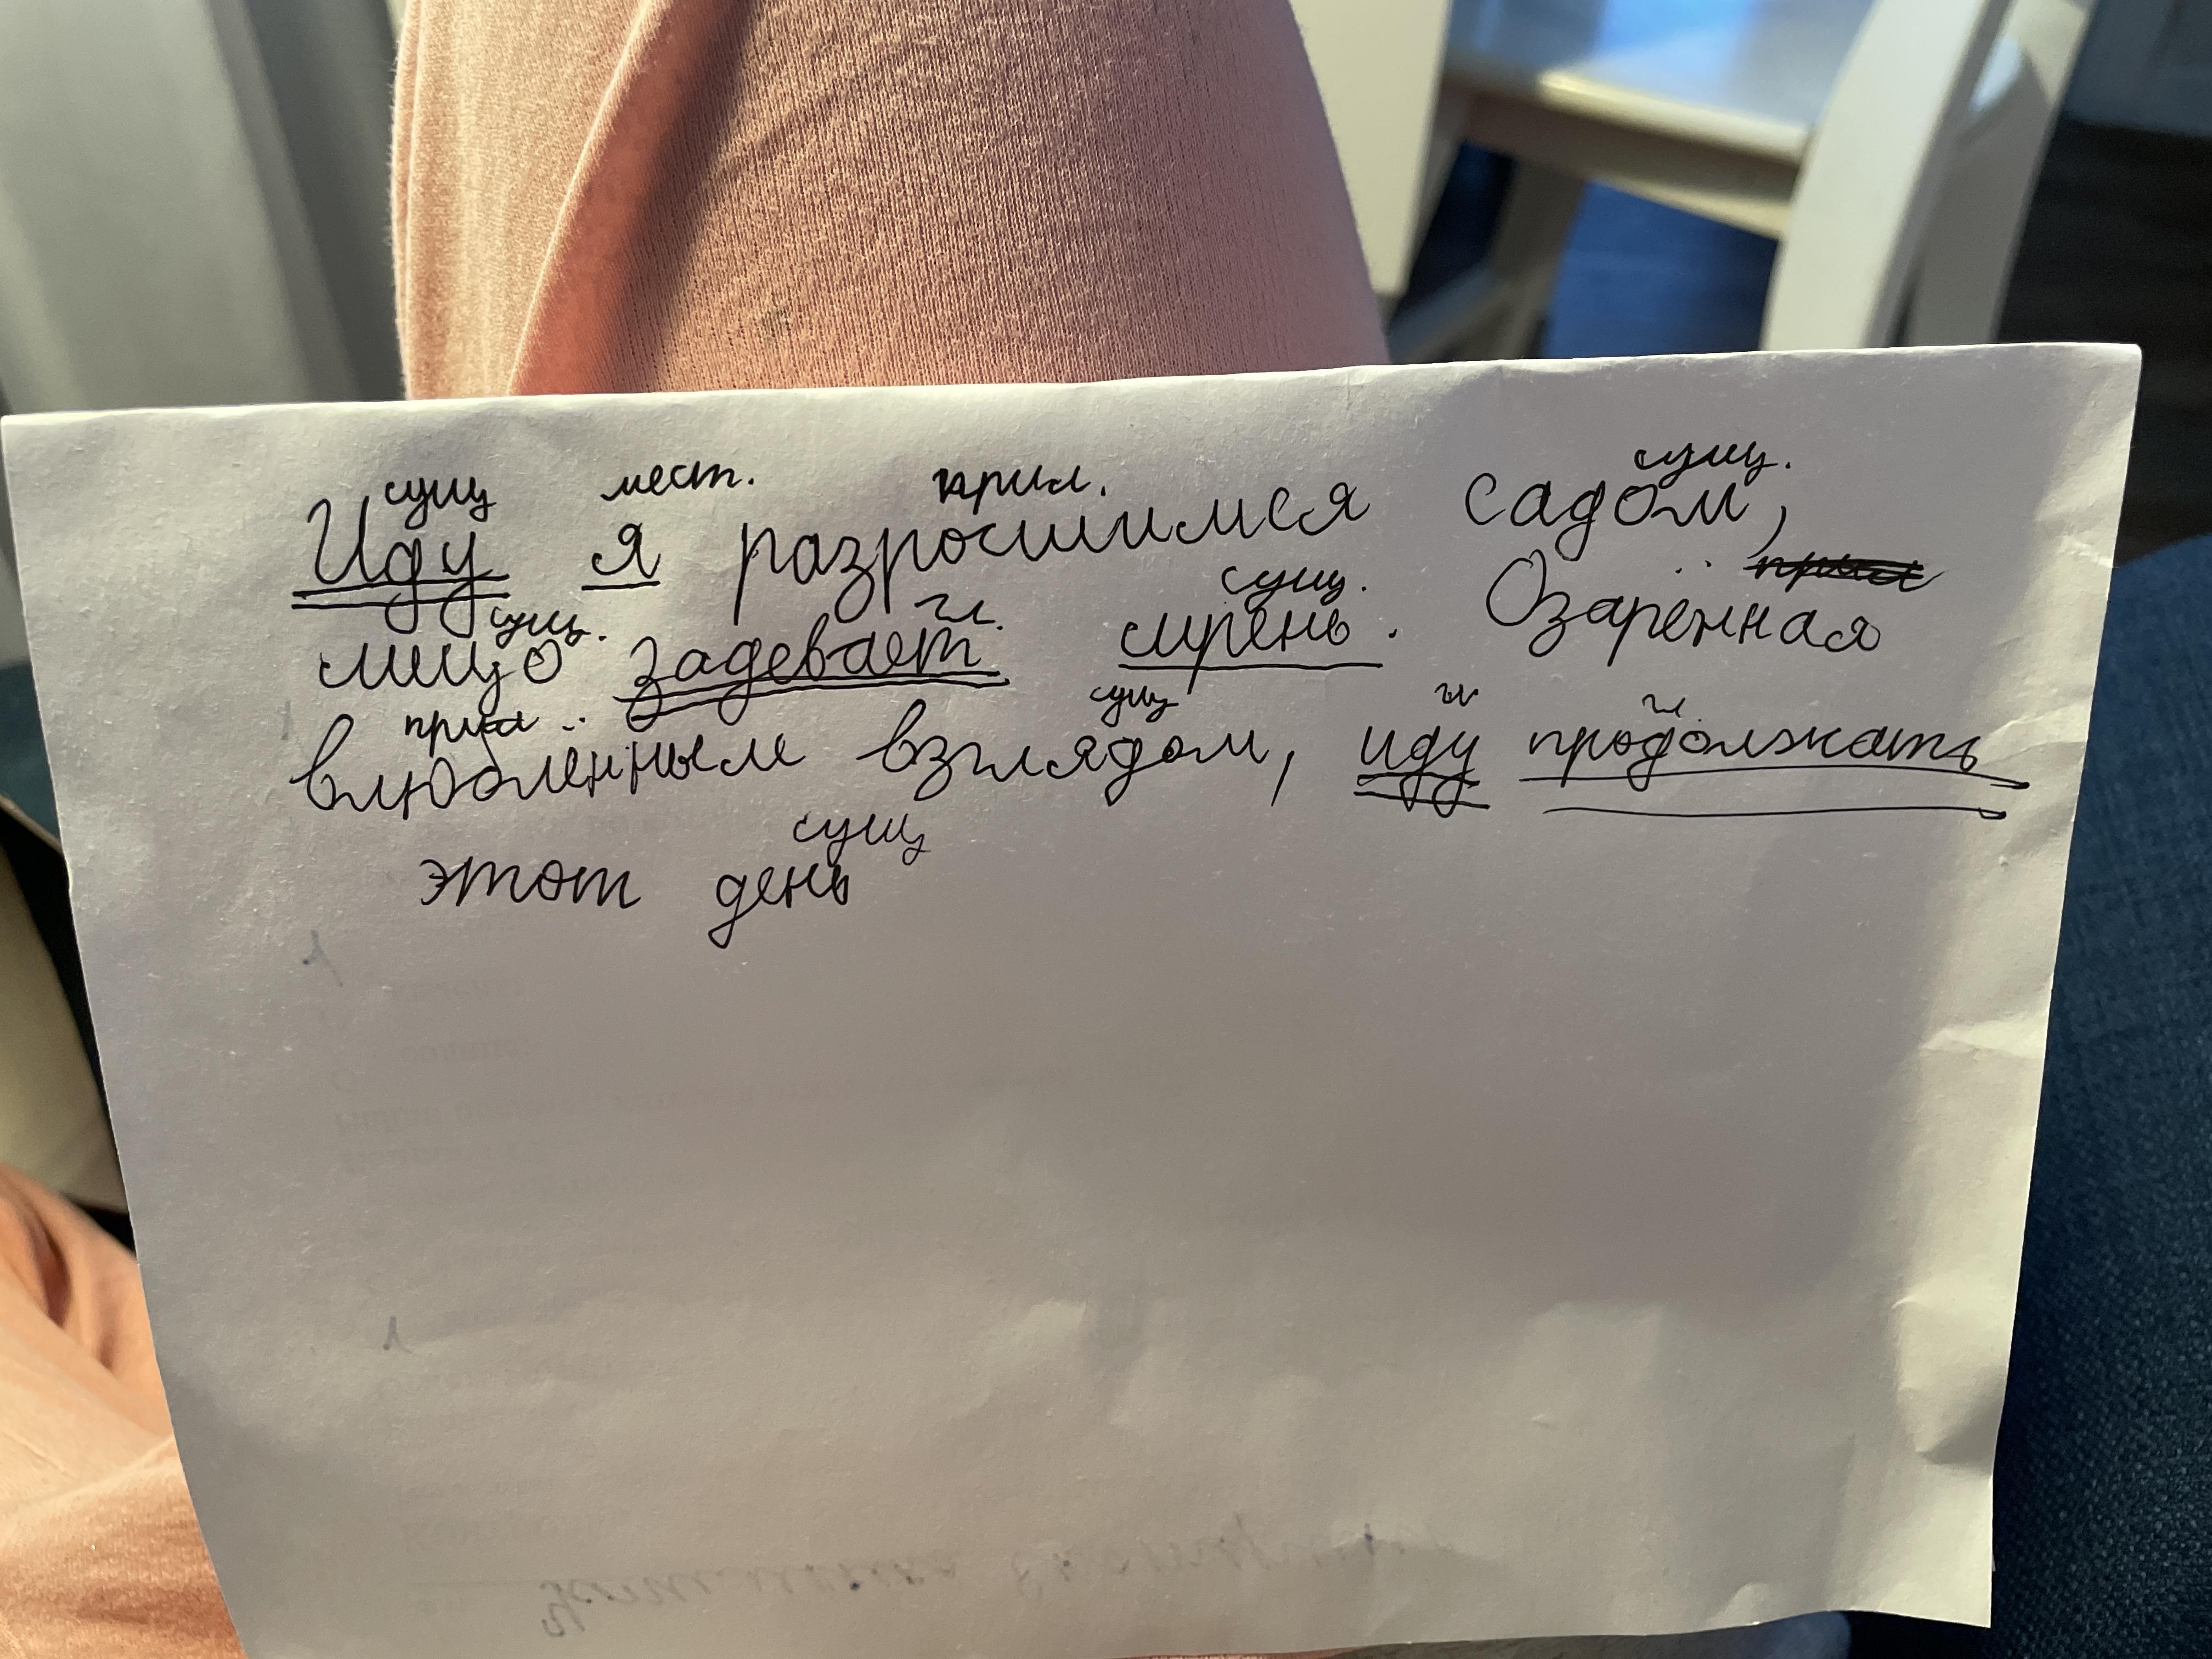 сущ мест. прил. сущ.
Иду я разросшимся садом,
сущ. гл. сущ. прил
лицо задевает сирень. Озарённая
прил сущ гл гл.
влюблённым взглядом, иду продолжать
сущ
этот день